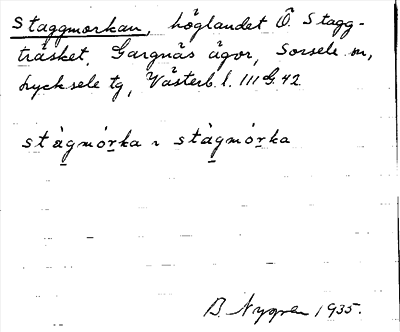 Staggmorkan, höglandet Ö. Stagg-
träsket, Gargnäs ägor, Sorsele sn,
Lycksele tg, Västerb. l. III G. 42
stàgmórka ~ stàgmórka
B. Nygren 1935.